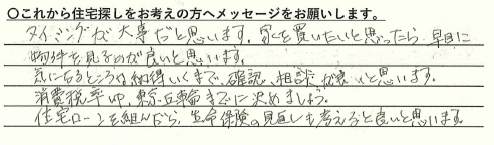 〇これから住宅探しをお考えの方へメッセージをお願いします。
タイミングが大事だと思います。家を買いたいと思ったら早目に
物件を見るのが良いと思います。
気になるところは納得いくまで、確認、相談が良いと思います。
消費税率up、東京五輪までに決めましょう。
住宅ローンを組んだら、生命保険の見直しも考えると良いと思います。